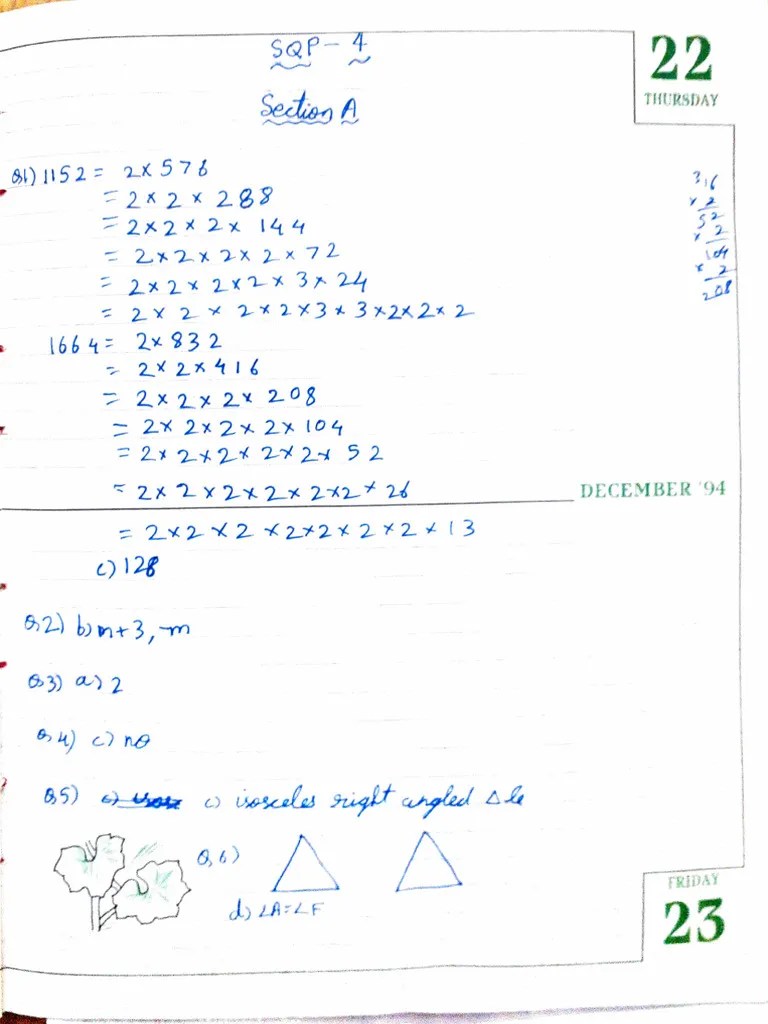 SQP - 4
22
THURSDAY
Section A
Q1) 1152 = 2 × 576
= 2 × 2 × 288
= 2 × 2 × 2 × 144
= 2 × 2 × 2 × 2 × 72
= 2 × 2 × 2 × 2 × 3 × 24
= 2 × 2 × 2 × 2 × 3 × 3 × 2 × 2 × 2
316
× 2
52
× 2
104
× 2
208
1664 = 2 × 832
= 2 × 2 × 416
= 2 × 2 × 2 × 208
= 2 × 2 × 2 × 2 × 104
= 2 × 2 × 2 × 2 × 2 × 52
= 2 × 2 × 2 × 2 × 2 × 2 × 26
DECEMBER '94
= 2 × 2 × 2 × 2 × 2 × 2 × 2 × 13
c) 128
Q.2) b) m + 3, -m
Q3) a) 2
Q.4) c) no
Q.5) c) isosceles right angled Δle
Q.6)
d) ∠A = ∠F
FRIDAY
23